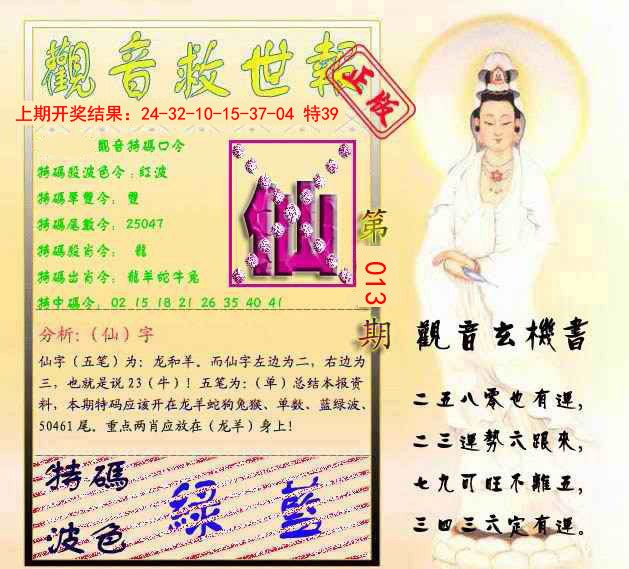 觀音救世報
正版
上期开奖结果：24-32-10-15-37-04 特39
觀音特碼口令
特碼段波色令：紅波
特碼單雙令： 雙
特碼尾數令：25047
特碼段肖令： 龍
特碼出肖令：龍羊蛇牛兔
特中碼令：02 15 18 21 26 35 40 41
仙
第
013
期
分析：（仙）字
仙字（五笔）为：龙和羊。而仙字左边为二，右边为
三，也就是说 23（牛）！五笔为：（单）总结本报资
料，本期特码应该开在龙羊蛇狗兔猴、单数、蓝绿波、
50461 尾。重点两肖应放在（龙羊）身上！
特碼
波色
綠 藍
觀音玄機書
二五八零也有運，
二三運勢六跟來，
七九可旺不離五，
三四三六定有運。